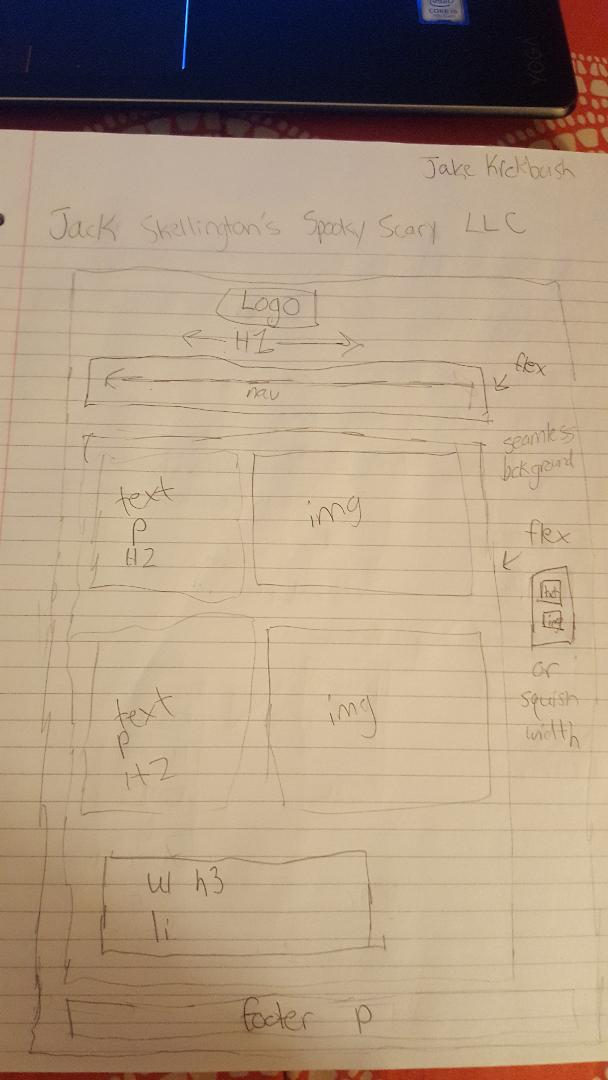 YOGA
CORE i5
Jake Krckbush
Jack Skellington's Spooky Scary LLC
Logo
H1
flex
nav
seamless
bckground
text
p
H2
img
flex
txt
img
or
squish
width
text
p
H2
img
ul h3
li
footer p